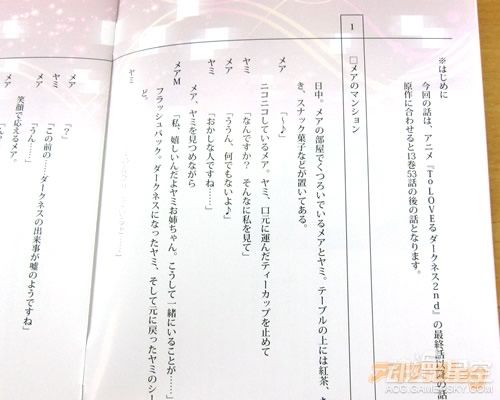 ※はじめに
今回の話は、アニメ『ToLOVEるダークネス2nd』の最終話以降の話
原作に合わせると13巻53話の後の話となります。
1
□メアのマンション
日中。メアの部屋でくつろいでいるメアとヤミ。テーブルの上には紅茶、
き、スナック菓子などが置いてある。
メア
「～♪」
ニコニコしているメア。ヤミ、口元に運んだティーカップを止めて
ヤミ
「なんですか? そんなに私を見て」
メア
「ううん、何でもないよ♪」
ヤミ
「おかしな人ですね……」
メア、ヤミを見つめながら
メアM
「私、嬉しいんだよヤミお姉ちゃん。こうして一緒にいることが……」
フラッシュバック。ダークネスになったヤミ、そして元に戻ったヤミのシー
ど。
ヤミ
メア
「?」
ヤミ
「この前の……ダークネスの出来事が嘘のようですね」
メア
「うん……」
笑顔で応えるメア。
メア
ACG.GAMERSKY.COM